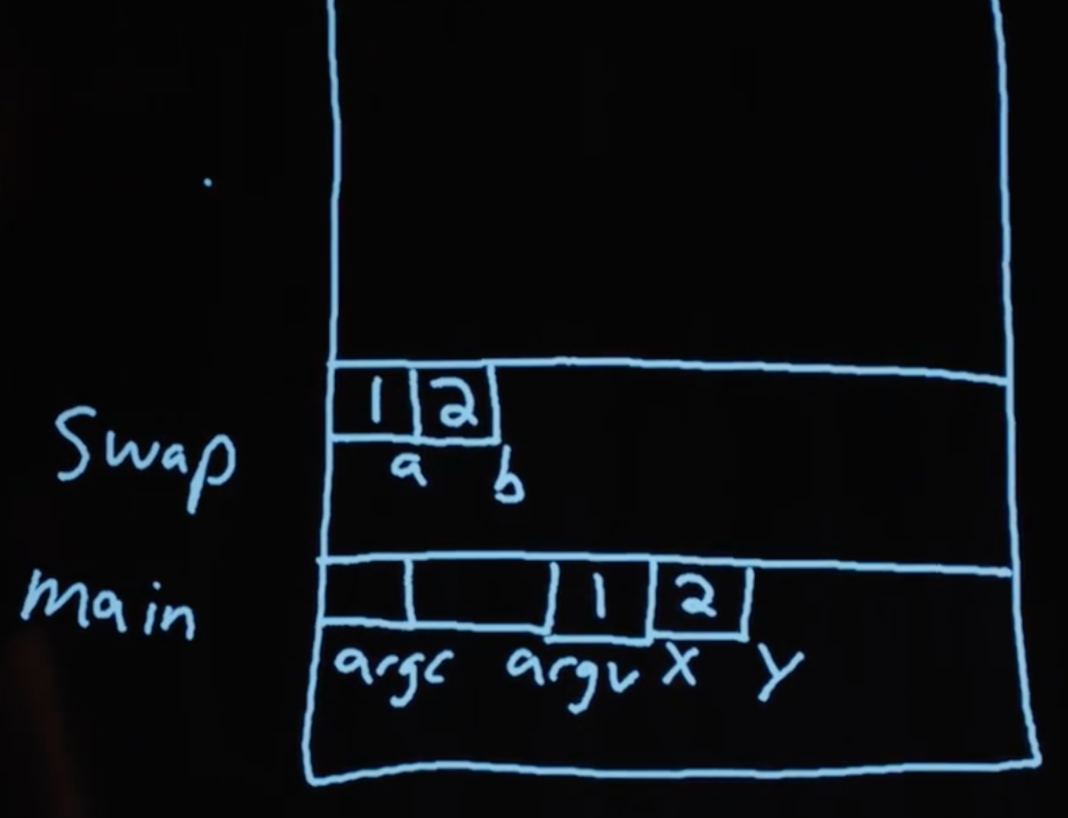 1 2
Swap a b
main 1 2
argc argv x y